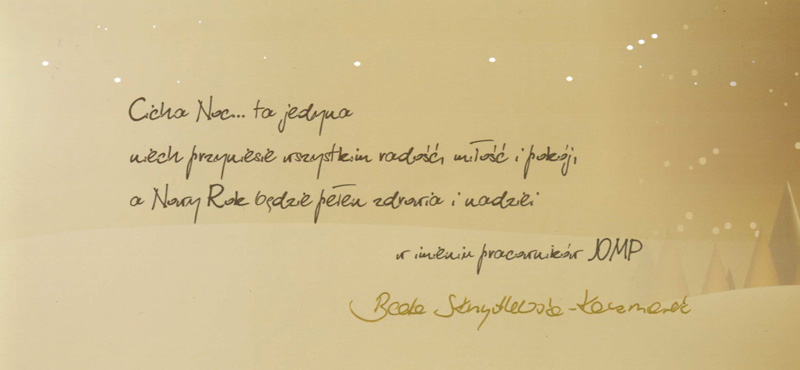 Cicha Noc... ta jedyna
niech przyniesie wszystkim radość, miłość i pokój,
a Nowy Rok będzie pełen zdrowia i nadziei
w imieniu pracowników JOMP
Beata Skrzydlewska-Kaczmarek